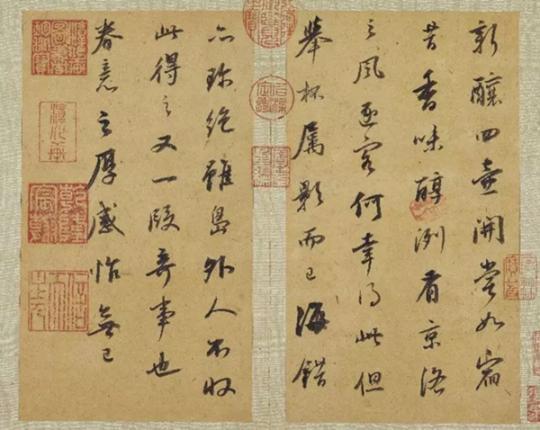 新釀四壺開嘗如宿
昔香味醇冽有京洛
之風逐客何幸得此但
舉杯屬影而已海錯
亦珍絕雖島外人不收
此得之又一段奇事也
眷意之厚感怍無已